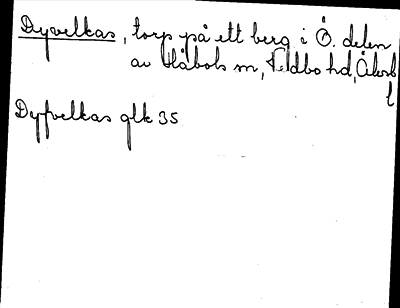 Dyvelkas, torp på ett berg i Ö. delen
av Håbols sn, Vedbo hd, Älvsb
l
Dyfvelkas glk 35